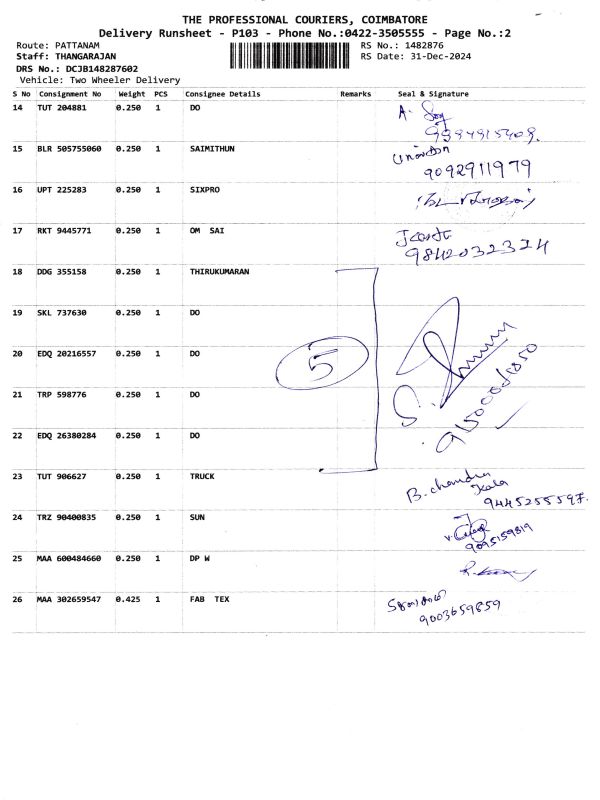 THE PROFESSIONAL COURIERS, COIMBATORE
Delivery Runsheet - P103 - Phone No.:0422-3505555 - Page No.:2
Route: PATTANAM RS No.: 1482876
Staff: THANGARAJAN RS Date: 31-Dec-2024
DRS No.: DCJB148287602
Vehicle: Two Wheeler Delivery
S No Consignment No Weight PCS Consignee Details Remarks Seal & Signature
14 TUT 204881 0.250 1 DO
15 BLR 505755060 0.250 1 SAIMITHUN
9092911979
16 UPT 225283 0.250 1 SIXPRO
17 RKT 9445771 0.250 1 OM SAI
9842032324
18 DDG 355158 0.250 1 THIRUKUMARAN
19 SKL 737630 0.250 1 DO
20 EDQ 20216557 0.250 1 DO
5
21 TRP 598776 0.250 1 DO
22 EDQ 26380284 0.250 1 DO
23 TUT 906627 0.250 1 TRUCK
B. chandra
kala
9445255597
24 TRZ 90400835 0.250 1 SUN
9095159819
25 MAA 600484660 0.250 1 DP W
26 MAA 302659547 0.425 1 FAB TEX
9003659859